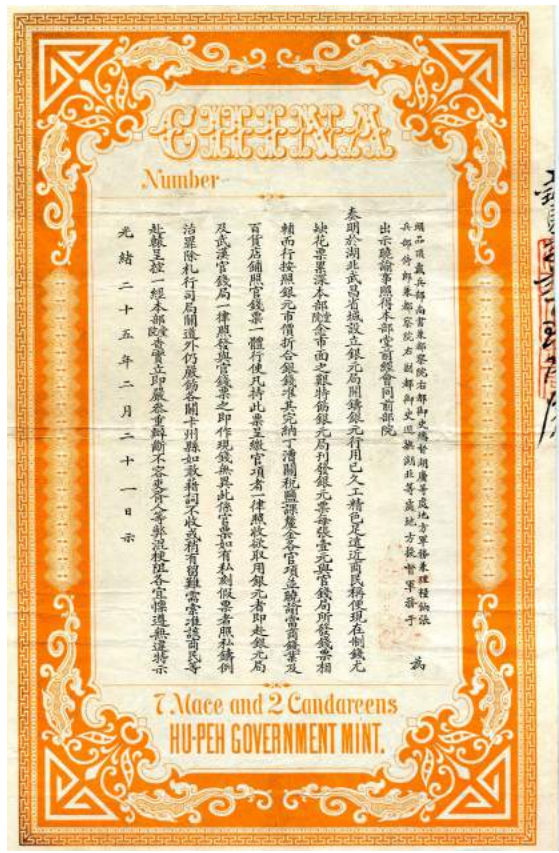 CHINA
Number
頭品頂戴兵部尚書兼都察院右都御史總督湖廣等處地方軍務兼理糧餉張
兵部侍郎兼都察院右副都御史巡撫湖北等處地方提督軍務于 為
出示曉諭事照得本部堂前經會同前部院
奏明於湖北武昌省城設立銀元局開鑄銀元行用已久工精色足遠近商民稱便現在制錢尤
缺花票累深本部堂院念市面之艱特飭銀元局刊發銀元票每張壹元與官錢局所發錢票相
輔而行按照銀元市價折合銀錢准其完納丁漕關稅鹽課釐金各官項並曉諭當商錢業及
百貨店鋪照官錢票一體行使凡持此票呈繳官項者一律照收欲取用銀元者即赴銀元局
及武漢官錢局一律照發與官錢票之即作現錢無異此係官票如有私刻假票者照私鑄例
治罪除札行司局關道外仍嚴飭各關卡州縣如敢藉詞不收或稍有留難需索准該商民等
赴轅呈控一經本部堂院查實立即嚴參重辦斷不容吏胥人等弊混梗阻各宜懍遵無違特示
光緒二十五年二月二十一日示
7 Mace and 2 Candareens
HU-PEH GOVERNMENT MINT.